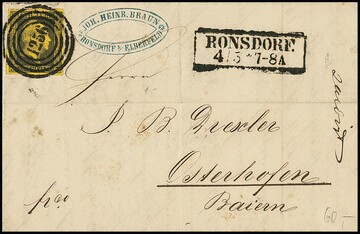 JOH. HEINR. BRAUN
RONSDORF b/ ELBERFELD
RONSDORF
4 5 * 7-8A
Herrn
J. B. Drexler
Osterhofen
Baiern
frco
60,-